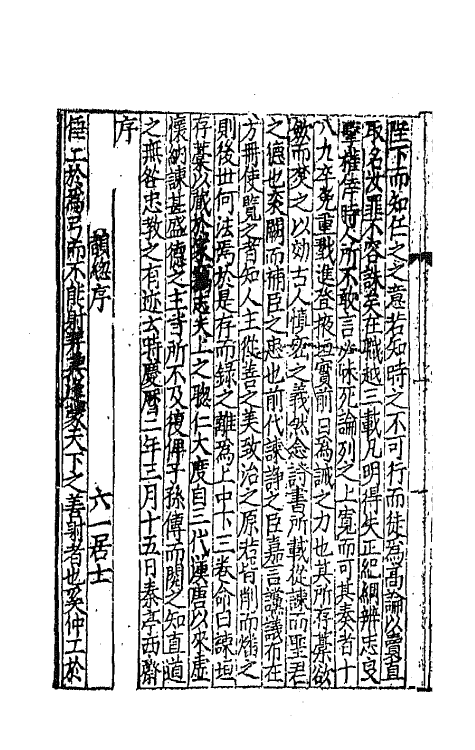 陛下而知仁之之意若知時之不可行而徒為高論以賣直
取名汝罪不容誅矣在職越三載凡明得失正紀綱辨忠良
擊權倖時人所不敢言必昧死論列之上寬而可其奏者十
八九卒免重戮進登掖垣實前日為誠之力也其所存藁欲
斂而焚之以効古人慎密之義然念詩書所載從諫而聖君
之德也袞闕而補臣之忠也前代諫諍之臣嘉言讜議布在
方冊使覽之者知人主從善之美致治之原若皆削而燬之
則後世何法焉於是存而錄之離為上中下三卷命曰諫垣
存藁以藏於家竊志夫上之聰仁大度自三代漢唐以來虛
懷納諫甚盛德之主皆所不及復俾子孫傳而閱之知直道
之無咎忠教之有迹云時慶曆二年三月十五日秦亭西齋
序
韻總序 六一居士
倕工於為弓而不能射羿與逢蒙天下之善射者也奚仲工於